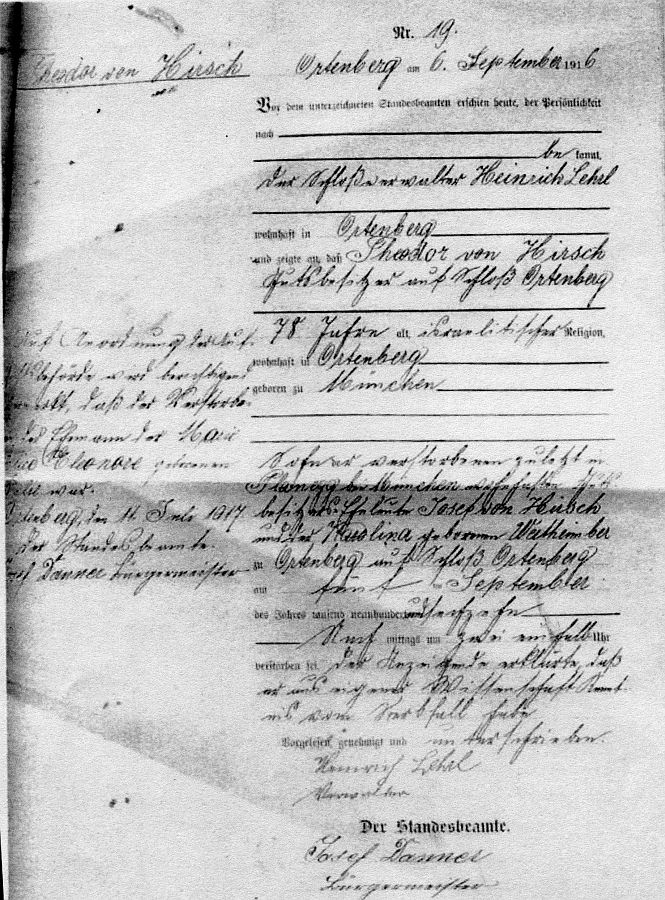 Nr. 19.
Theodor von Hirsch
Ortenberg am 6. September 1916
Vor dem unterzeichneten Standesbeamten erschien heute, der Persönlichkeit
nach
be kannt,
der Schloßverwalter Heinrich Lehrl
wohnhaft in Ortenberg
und zeigte an, daß Theodor von Hirsch
Gutsbesitzer auf Schloß Ortenberg
78 Jahre alt, israelitischer Religion,
wohnhaft in Ortenberg
geboren zu München
Sohn der verstorbenen zuletzt in
Planegg bei München wohnhaften Guts
besitzers Eheleute Josef von Hirsch
und der Karolina geborenen Wertheimber
zu Ortenberg auf Schloß Ortenberg
am fünften September
des Jahres tausend neunhundert und sechzehn
Nach mittags um zwei einhalb Uhr
verstorben sei. Der Anzeigende erklärte, daß
er aus eigener Wissenschaft Kennt
nis vom Sterbfall habe.
Vorgelesen, genehmigt und unterschrieben.
Heinrich Lehrl
Verwalter
Der Standesbeamte.
Josef Danner
Bürgermeister
Auf Anordnung der Auf
sichtsbehörde wird berichtigend
bemerkt, daß der Verstorbe
der Ehemann der Marie
Eleonore geborenen
war.
Ortenberg, den 11. Juli 1917
Der Standesbeamte.
Josef Danner Bürgermeister